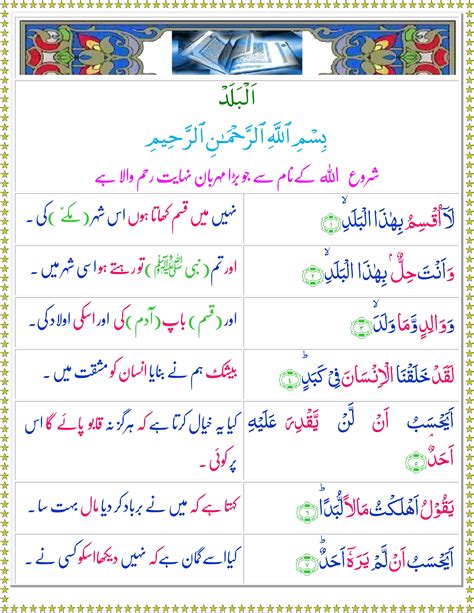 اَلْبَلَدْ
بِسْمِ اللّٰهِ الرَّحْمٰنِ الرَّحِيمِ
شروع اللہ کے نام سے جو بڑا مہربان نہایت رحم والا ہے
لَاۤ اُقْسِمُ بِهٰذَا الْبَلَدِۙ ﴿۱﴾
نہیں میں قسم کھاتا ہوں اس شہر (مکے) کی ۔
وَاَنْتَ حِلٌّۢ بِهٰذَا الْبَلَدِۙ ﴿۲﴾
اور تم (نبی ﷺ) تو رہتے ہو اسی شہر میں ۔
وَوَالِدٍ وَّمَا وَلَدَۙ ﴿۳﴾
اور (قسم) باپ (آدم) کی اور اسکی اولاد کی ۔
لَقَدْ خَلَقْنَا الْاِنْسَانَ فِىْ كَبَدٍؕ ﴿۴﴾
بیشک ہم نے بنایا انسان کو مشقت میں ۔
اَيَحْسَبُ اَنْ لَّنْ يَّقْدِرَ عَلَيْهِ
اَحَدٌۘ ﴿۵﴾
کیا یہ خیال کرتا ہے کہ ہرگز نہ قابو پائے گا اس
پر کوئی ۔
يَقُوْلُ اَهْلَكْتُ مَالًا لُّبَدًاؕ ﴿۶﴾
کہتا ہے کہ میں نے برباد کر دیا مال بہت سا ۔
اَيَحْسَبُ اَنْ لَّمْ يَرَهٗۤ اَحَدٌؕ ﴿۷﴾
کیا اسے گمان ہے کہ نہیں دیکھا اسکو کسی نے ۔